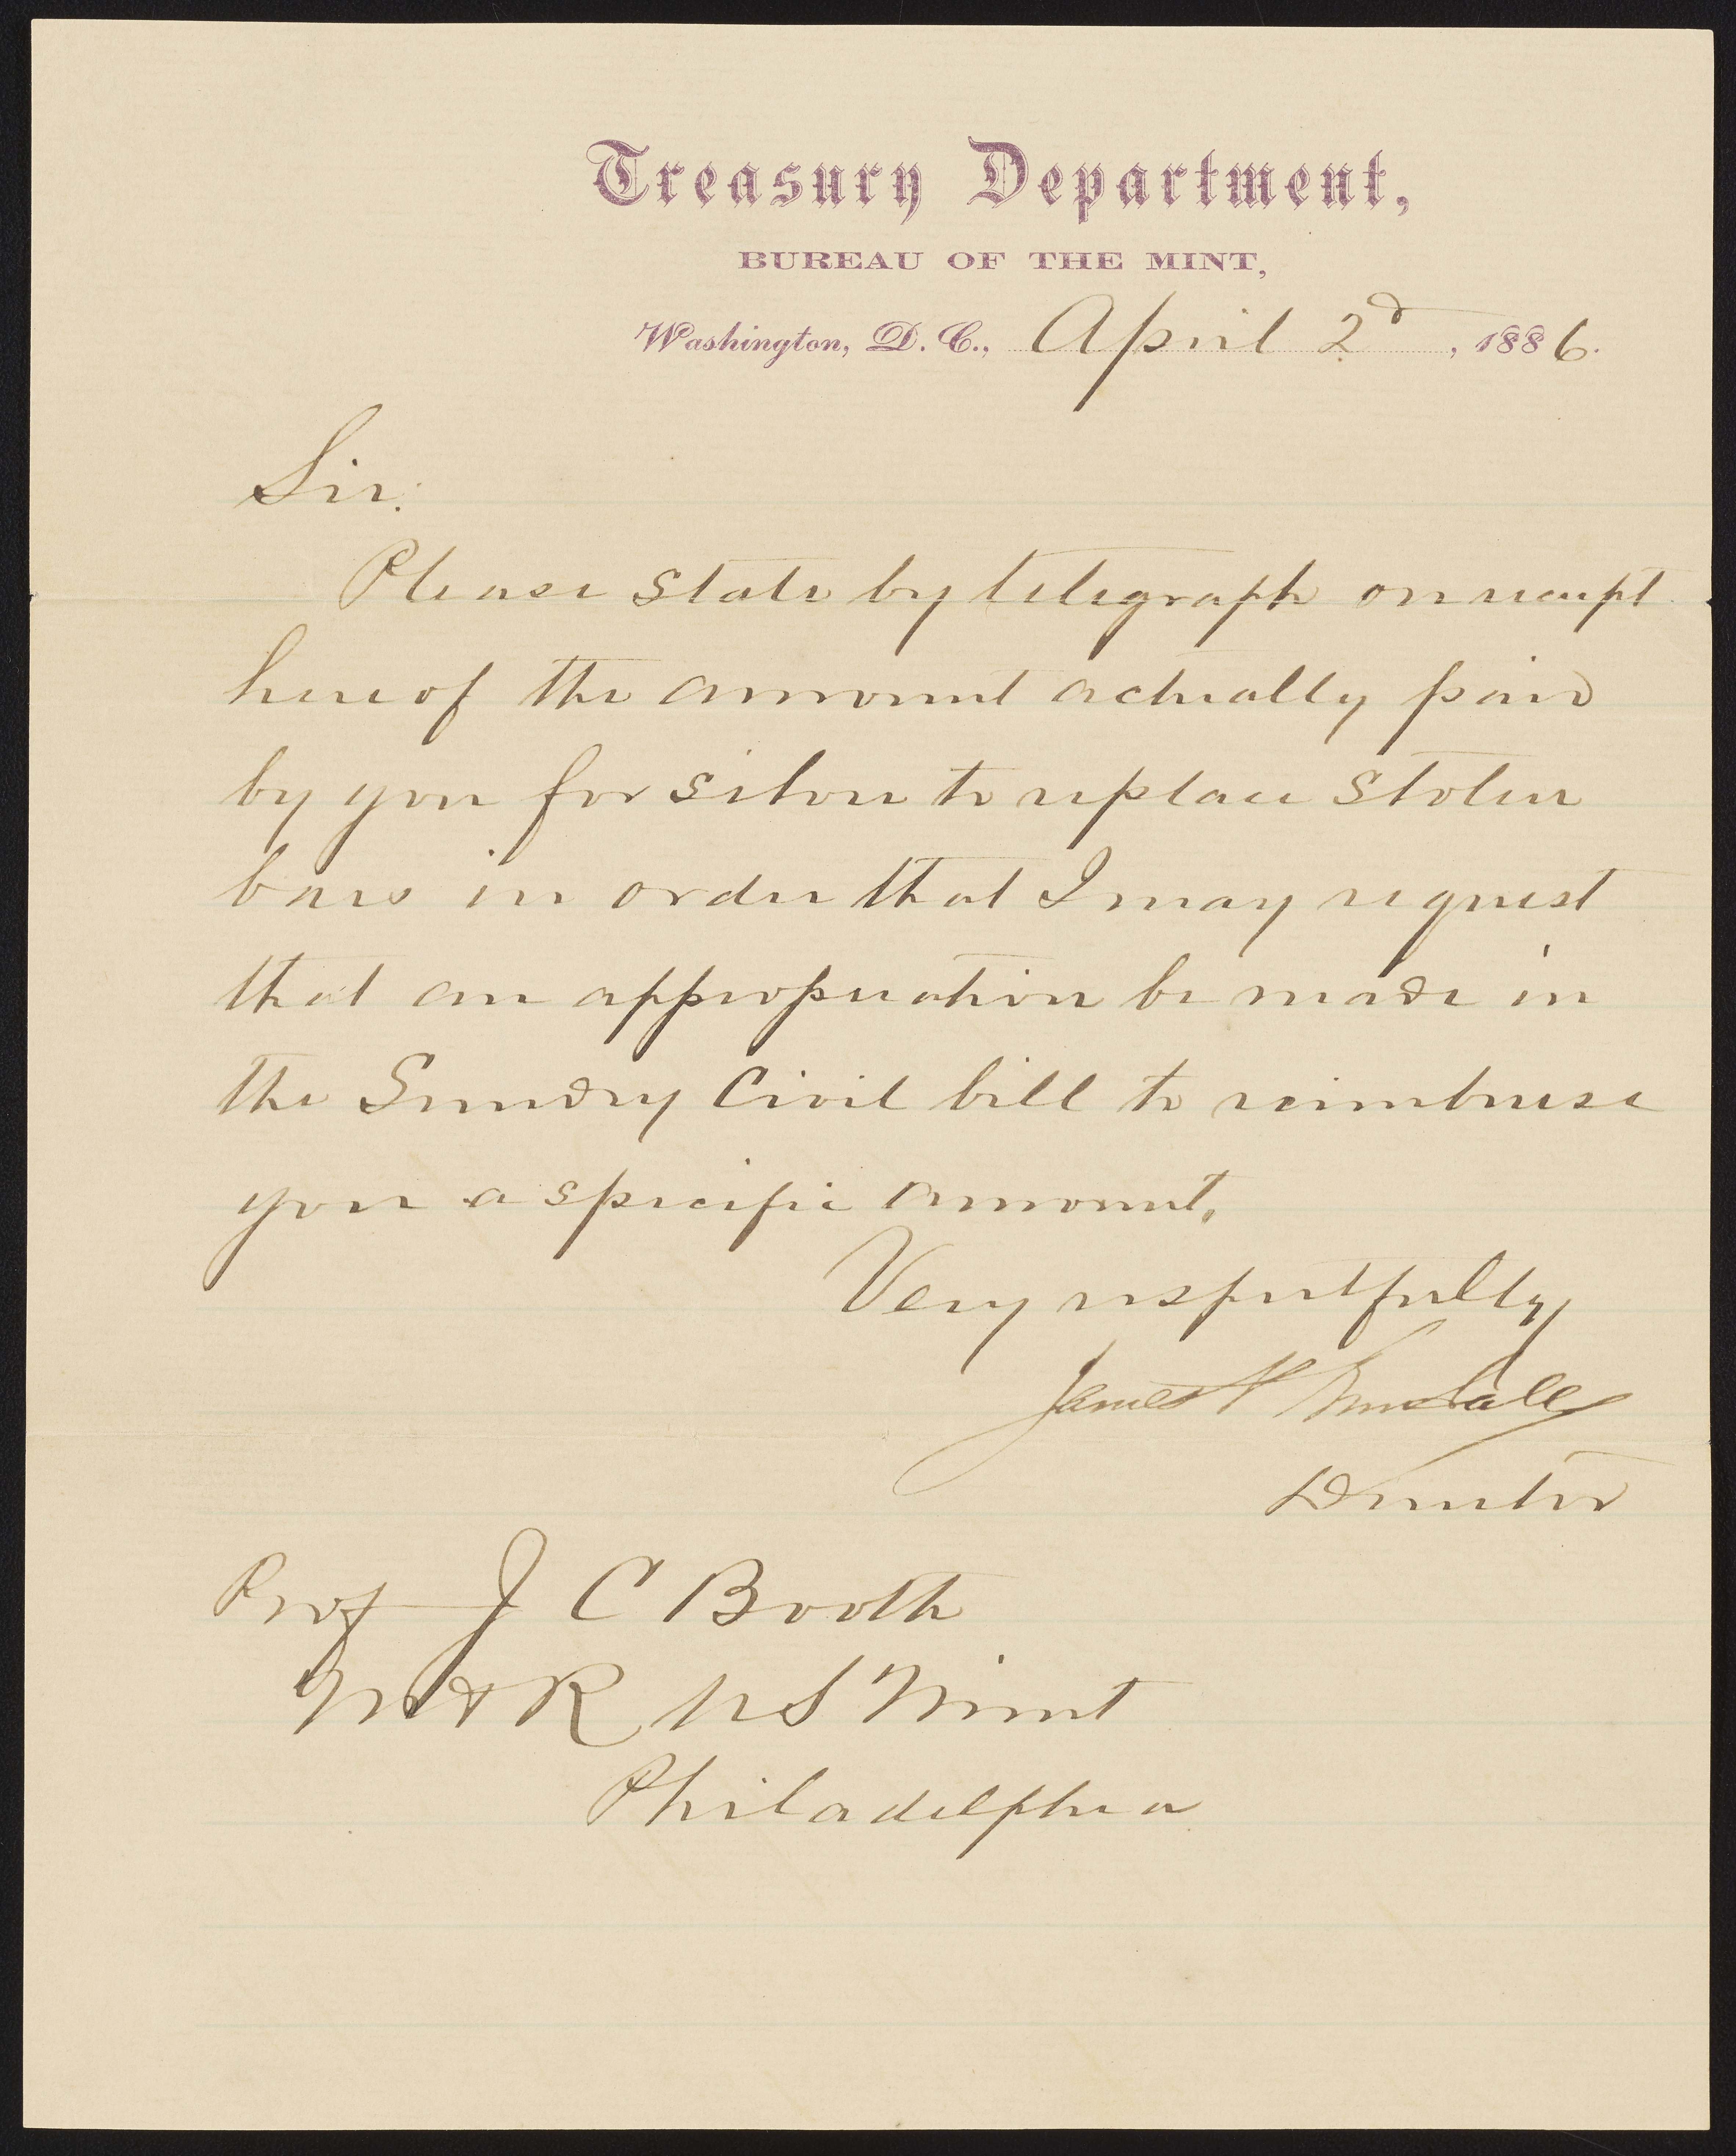 Treasury Department,
BUREAU OF THE MINT,
Washington, D. C., April 2d, 1886.
Sir:
Please state by telegraph on receipt
hereof the amount actually paid
by you for silver to replace stolen
bars in order that I may request
that an appropriation be made in
the Sundry Civil bill to reimburse
you a specific amount.
Very respectfully
James P Kimball
Director
Prof J C Booth
M & R U S Mint
Philadelphia